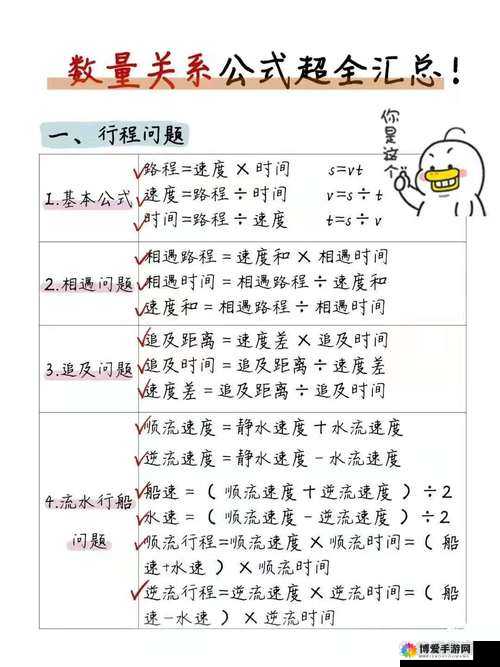 数量关系公式超全汇总!
你是这个
一、行程问题
1.基本公式
路程=速度×时间 s=vt
速度=路程÷时间 v=s÷t
时间=路程÷速度 t=s÷v
2.相遇问题
相遇路程=速度和×相遇时间
相遇时间=相遇路程÷速度和
速度和=相遇路程÷相遇时间
3.追及问题
追及距离=速度差×追及时间
追及时间=追及距离÷速度差
速度差=追及距离÷追及时间
4.流水行船
问题
顺流速度=静水速度+水流速度
逆流速度=静水速度-水流速度
船速=(顺流速度+逆流速度)÷2
水速=(顺流速度-逆流速度)÷2
顺流行程=顺流速度×顺流时间=(船
速+水速)×顺流时间
逆流行程=逆流速度×逆流时间=(船
速-水速)×逆流时间
博爱手游网